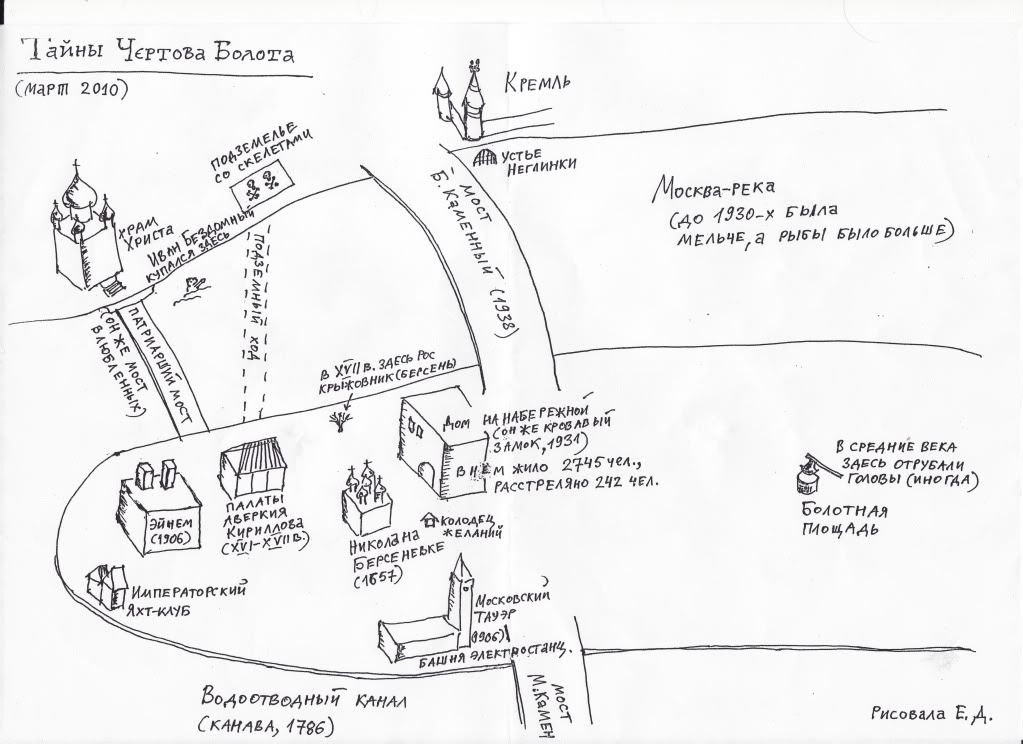 Тайны Чертова Болота
(март 2010)
Кремль
устье
Неглинки
Москва-река
(до 1930-х была
мельче, а рыбы было больше)
мост
Б. Каменный (1938)
подземелье
со скелетами
храм
Христа
Иван Бездомный
купался здесь
подземный ход
Патриарший мост
(он же мост
влюбленных)
в XVII в. здесь рос
крыжовник (берсень)
Дом на набережной
(он же кровавый
замок, 1931)
в нем жило 2745 чел.,
расстреляно 242 чел.
в средние века
здесь отрубали
головы (иногда)
Болотная
площадь
Эйнем
(1906)
палаты
Аверкия
Кириллова
(XVI-XVII в.)
Никола на
Берсеневке
(1657)
колодец
желаний
Императорский
яхт-клуб
Московский
Тауэр
(1906)
башня электростанц.
мост
М. Камен
Водоотводный канал
(канава, 1786)
Рисовала Е.Д.